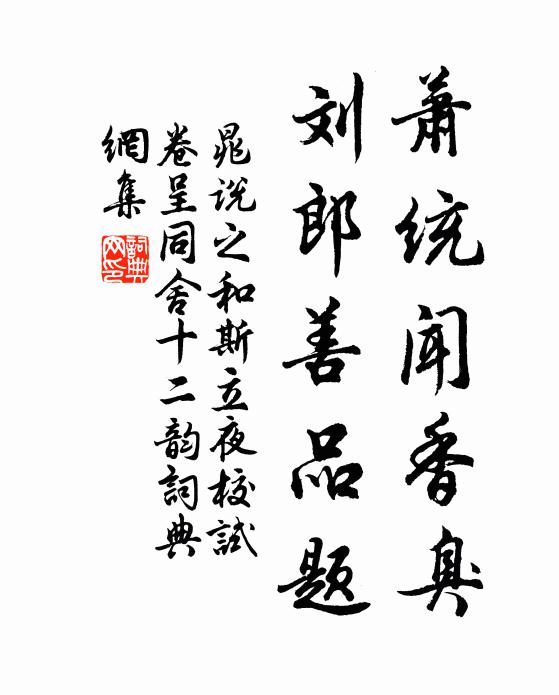 萧统闻香臭
刘郎善品题
晁说之和斯立夜校試
卷呈同舍十二韵詞典
網集
詞典網印